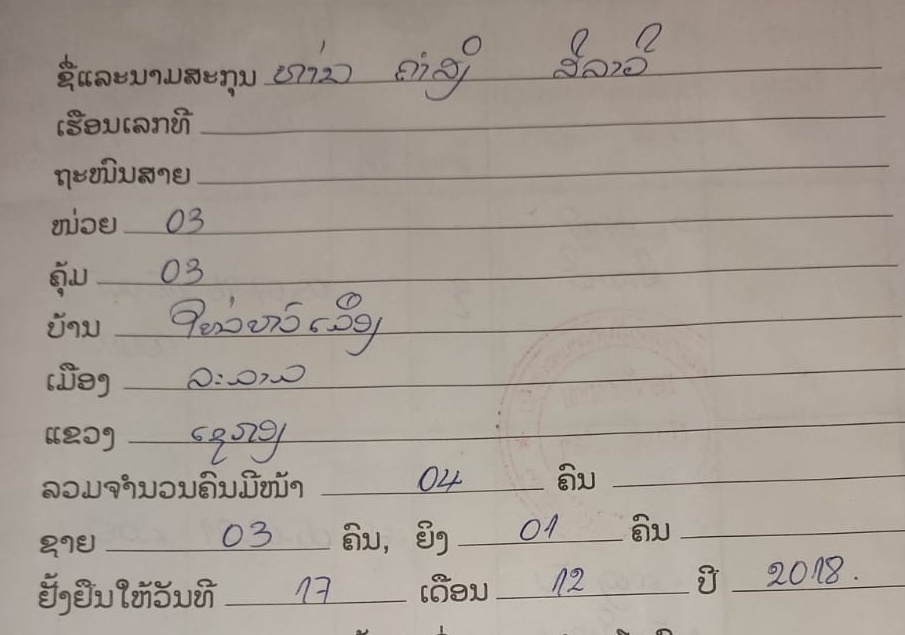 ຊື່ແລະນາມສະກຸນ ທ່ານ ຄຳສິງ ສີລາວີ
ເຮືອນເລກທີ
ຖະໜົນສາຍ
ໜ່ວຍ 03
ຄຸ້ມ 03
ບ້ານ
ເມືອງ ລະມາມ
ແຂວງ ເຊກອງ
ລວມຈຳນວນຄົນມີໜ້າ 04 ຄົນ
ຊາຍ 03 ຄົນ, ຍິງ 01 ຄົນ
ຢັ້ງຢືນໃຫ້ວັນທີ 17 ເດືອນ 12 ປີ 2018.